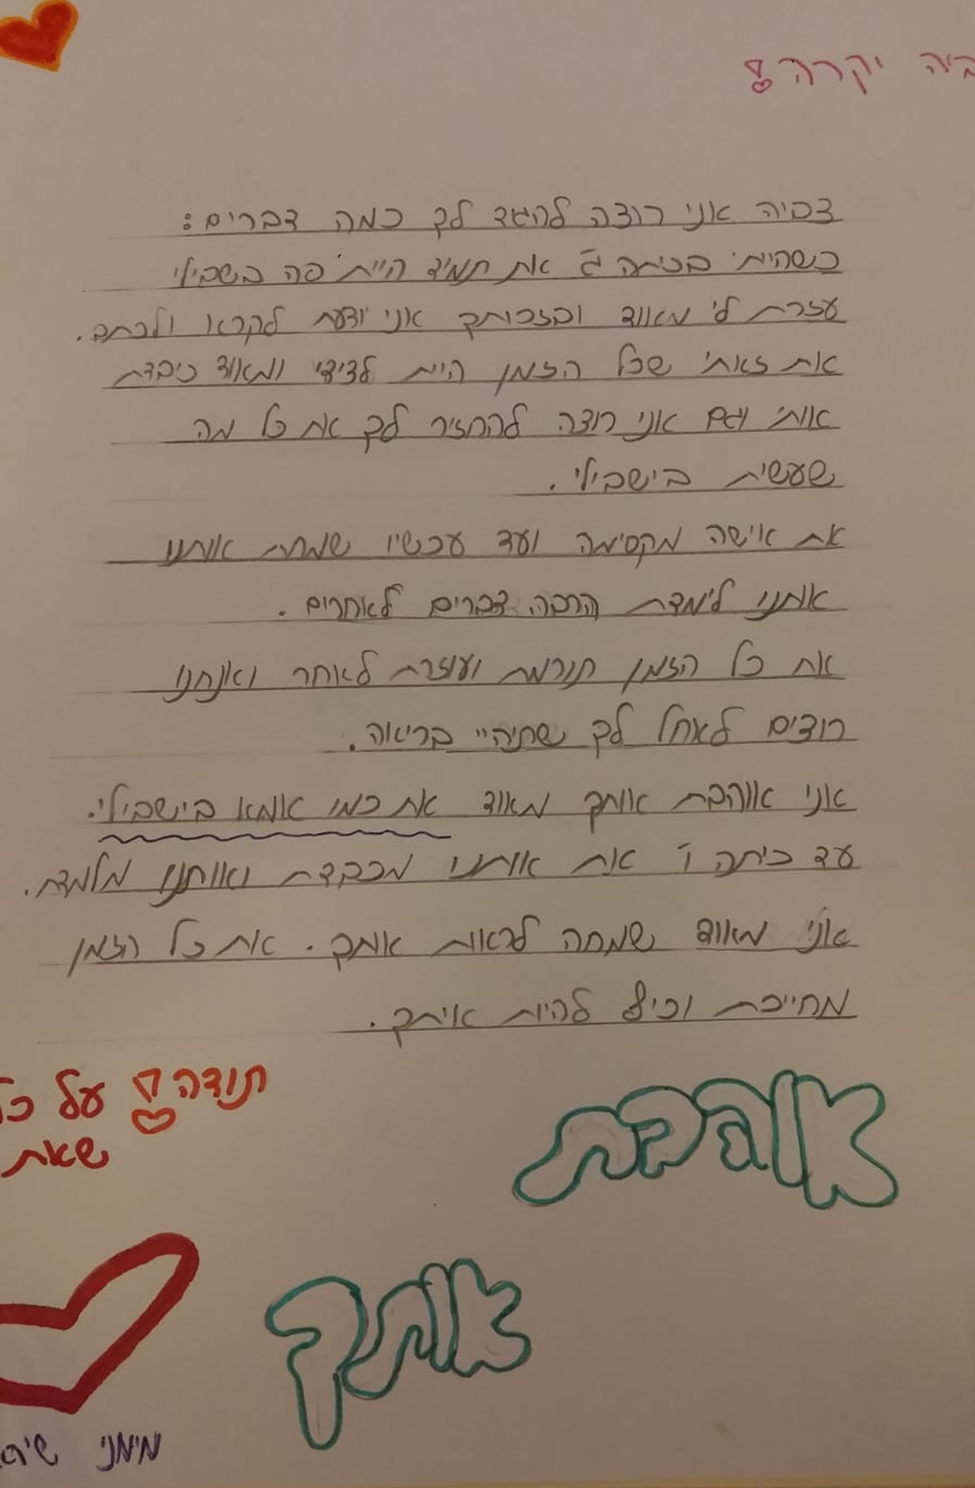 יקרה!
צביה אני רוצה להגיד לך כמה דברים:
כשהייתי בכיתה ג' את תמיד היית פה בשבילי
עזרת לי מאוד ובזכותך אני יודעת לקרוא ולכתוב.
את זאתי שכל הזמן היית לצידי ומאוד כיבדת
אותי וגם אני רוצה להחזיר לך את כל מה
שעשית בישבילי.
את אישה מקסימה ועד עכשיו שמחת אותנו
לימדת הרבה דברים לאחרים.
את כל הזמן תורמת ועוזרת לאחר ואנחנו
רוצים לאחל לך שתהיי בריאה.
אני אוהבת אותך מאוד את כמו אמא בישבילי.
עד כיתה ו' את אותנו מכבדת ואותנו מלמדת.
אני מאוד שמחה לראות אותך. את כל הזמן
מחייכת וכיף להיות איתך.
תודה! על כל
שאת
אוהבת
אותך